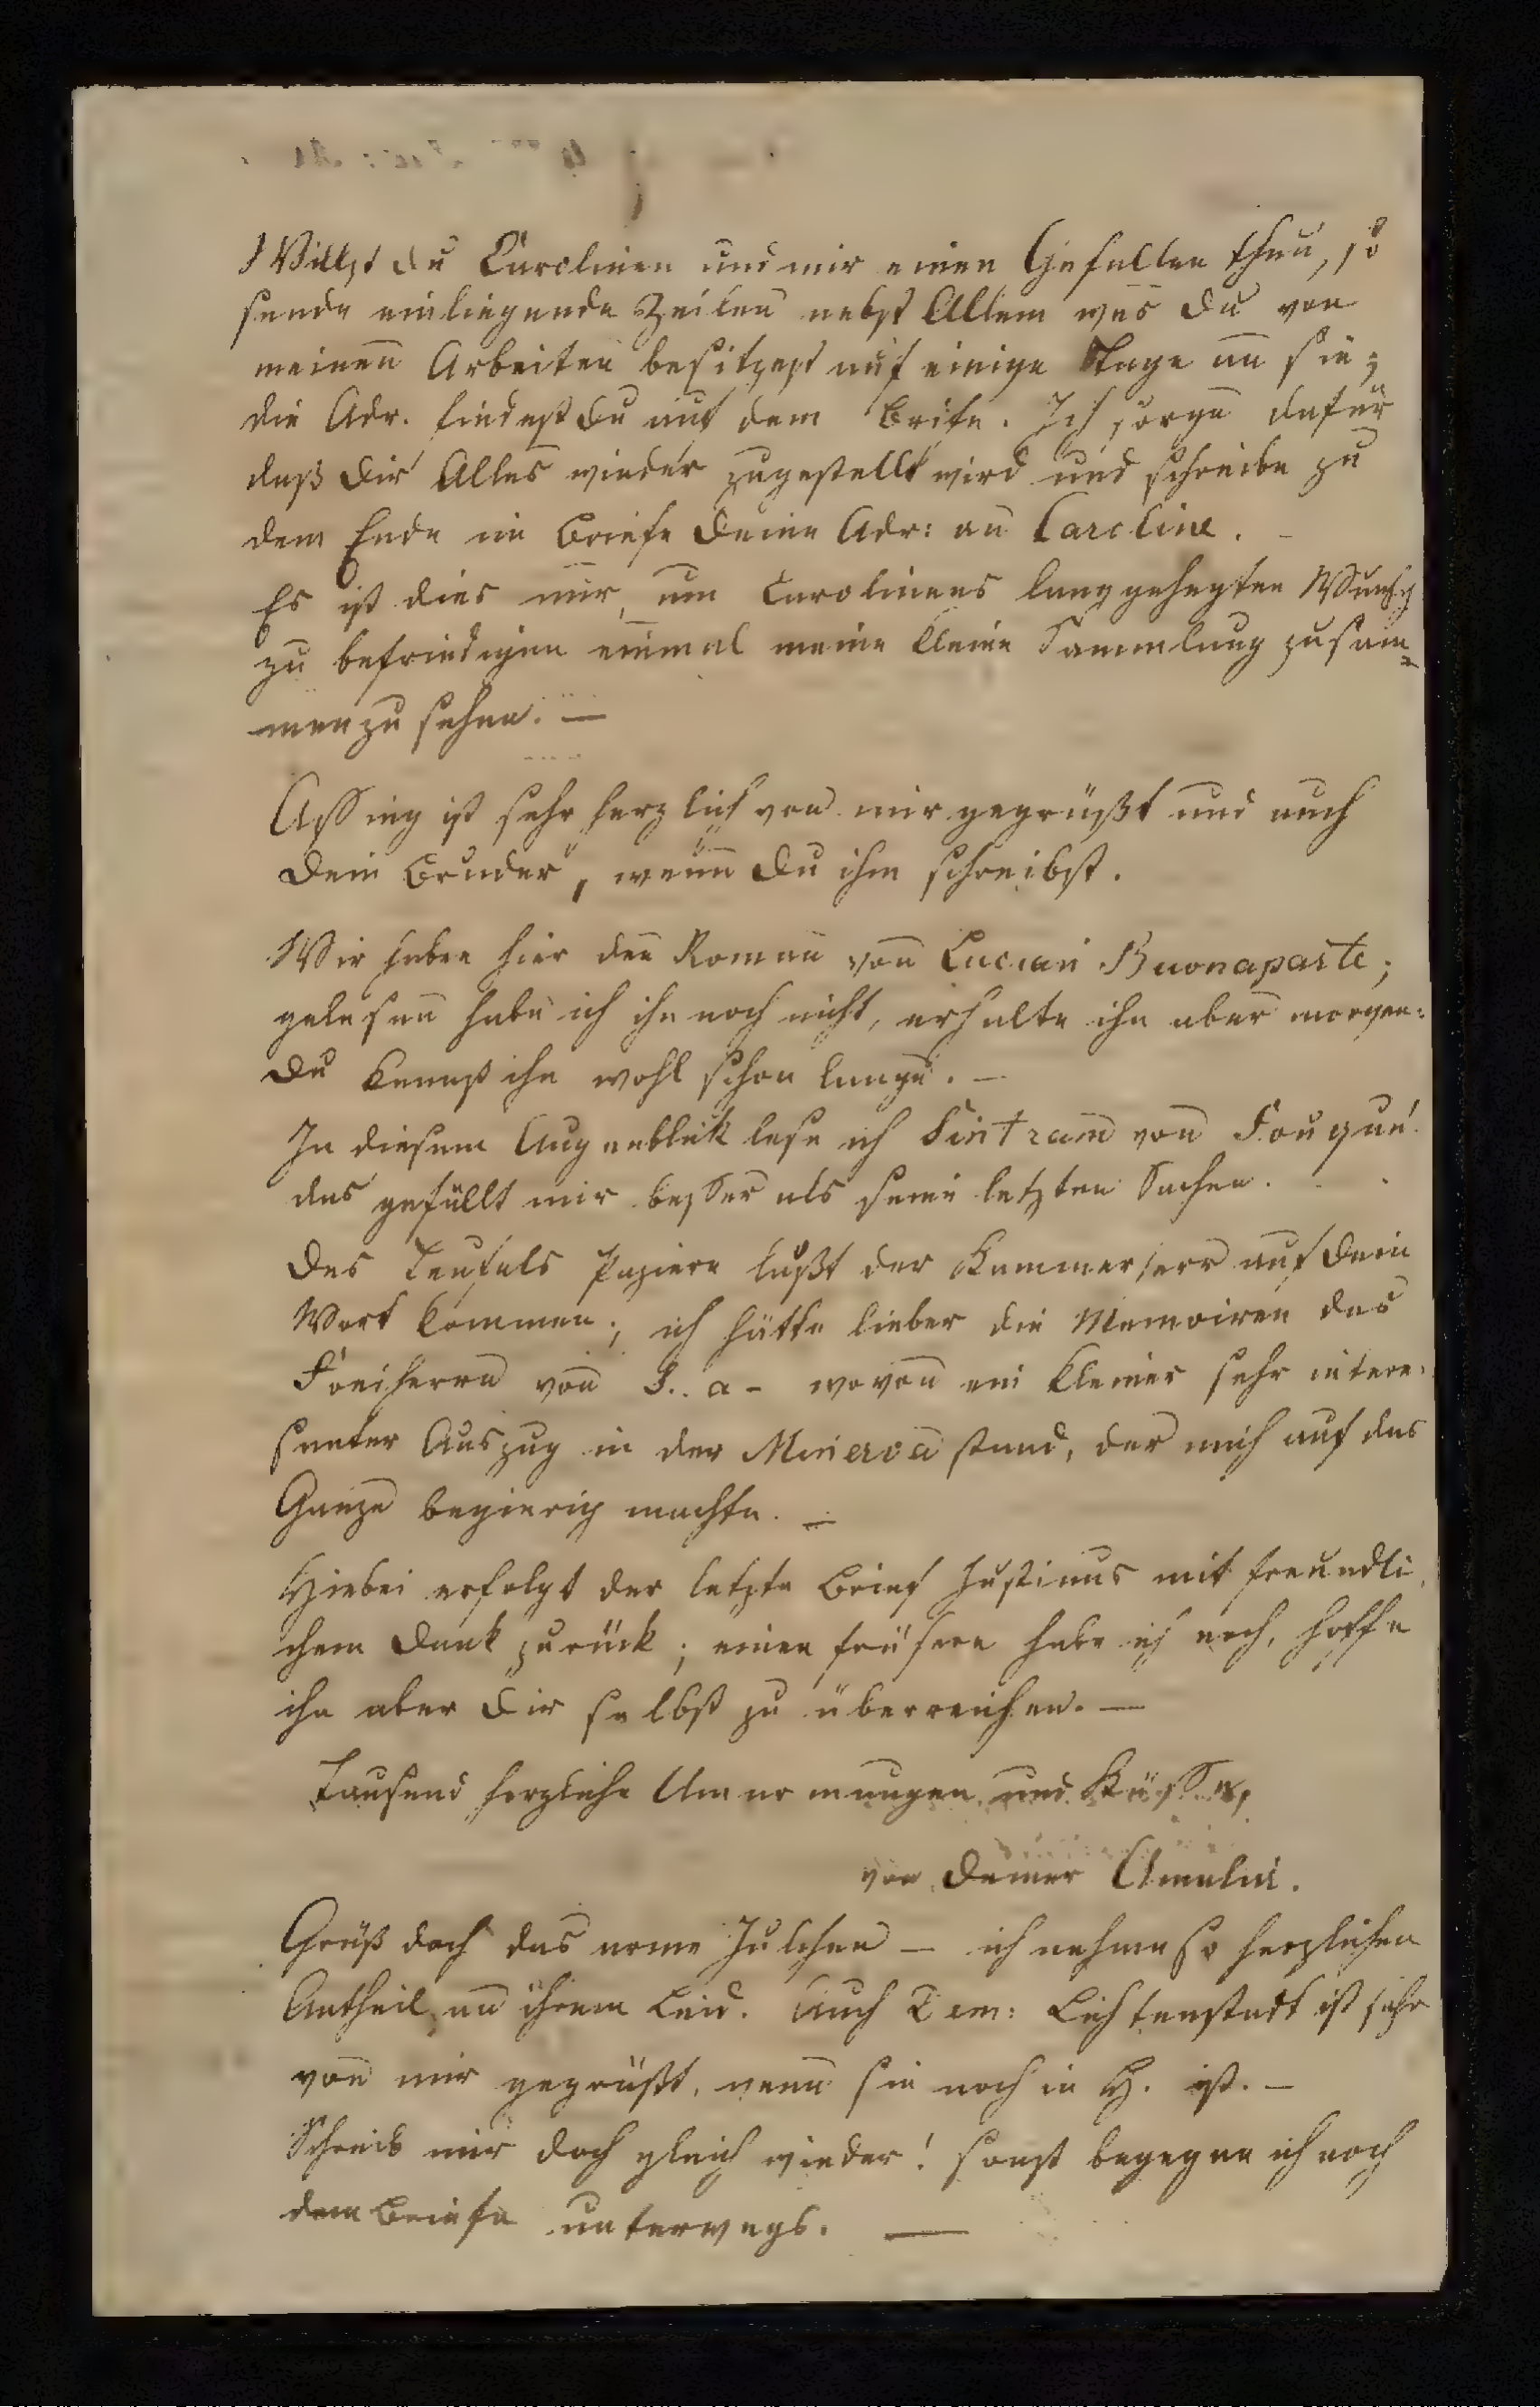 Willst du Carolinen und mir einen Gefallen thun, so
sende einliegende Zeilen nebst Allem was du von
meinen Arbeiten besitzest auf einige Tage an sie;
die Adr. findest du auf dem Brife. Ich sorge dafür
daß dir Alles wieder zugestellt wird und schreibe zu
dem Ende im Briefe deine Adr: an Caroline. –
Es ist dies nur, um Carolinens langgehegten Wunsch
zu befriedigen einmal meine kleine Sammlung zusam=
menzusehen. —
Assing ist sehr herzlich von mir gegrüßt und auch
dein Bruder, wenn du ihm schreibst.
Wir haben hier den Roman von Lucian Buonaparte;
gelesen habe ich ihn noch nicht, erhalte ihn aber morgen:
du kennst ihn wohl schon lange. –
In diesem Augenblick lese ich Sintram von Fouqué.
das gefällt mir besser als seine letzten Sachen.
Des Teufels Papiere läßt der Kammerherr auf dein
Wort kommen; ich hätte lieber die Memoiren des
Freiherrn von S..a– wovon ein kleiner sehr intere=
santer Auszug in der Minerva stand, der mich auf das
Ganze begierig machte. –
Hiebei erfolgt der letzte Brief Justinus mit freundli
chem Dank zurück; einen frühern habe ich noch, hoffe
ihn aber dir selbst zu überreichen. —
Tausend herzliche Umarmungen und Küsse,
von deiner Amalia.
Grüß doch das arme Julchen – ich nehme so herzlichen
Antheil an ihrem Leid. Auch Dem: Lichtenstadt ist sehr
von mir gegrüßt, wenn sie noch in H. ist. –
Schreib mir doch gleich wieder! sonst begegne ich noch
dem Briefe unterwegs. —